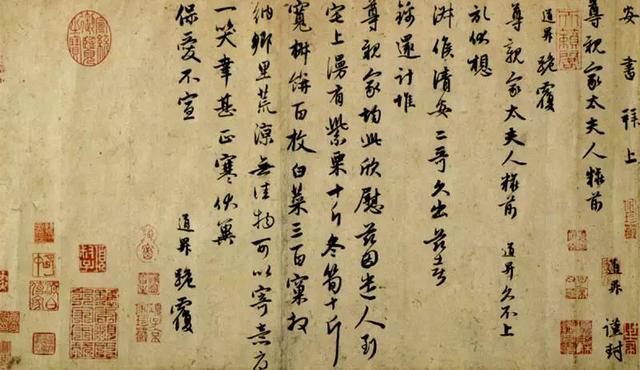 安 書 拜上
尊親家太夫人粧前
道昇 謹封
道昇跪覆
尊親家太夫人粧前 道昇久不上
於伏想
候清安二哥久出茲喜
錦還計惟
尊親家均此欣慰茲因遣人到
宅上漫有紫栗十斤冬筍十斤
寬餅百枚白菜三百窠拜
納鄉里荒涼無佳物可以寄意
一笑幸甚正寒伏冀
保愛不宣
道昇 跪覆